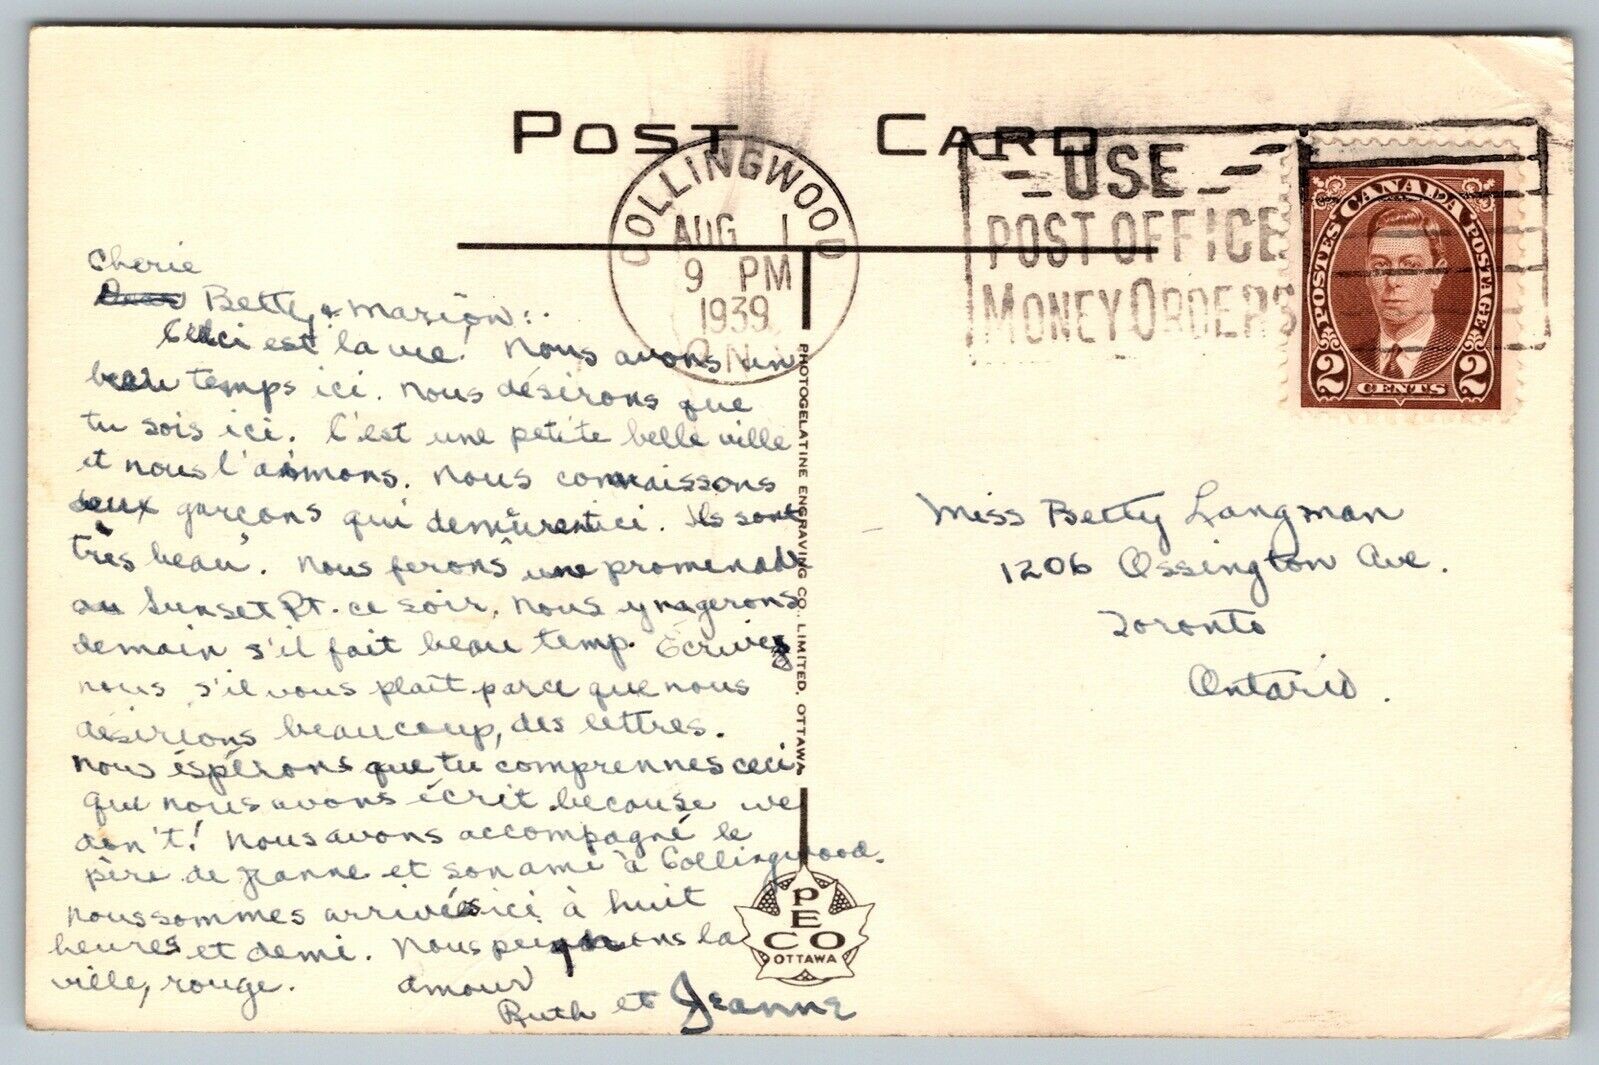 POST CARD
COLLINGWOOD
AUG 1
9 PM
1939
ONT
USE
POST OFFICE
MONEY ORDERS
POSTES CANADA POSTAGE
2 CENTS 2
Cherie
Dear Betty & Marion:
C'est la vie! Nous avons un
beau temps ici. Nous désirons que
tu sois ici. C'est une petite belle ville
et nous l'aimons. Nous connaissons
deux garçons qui demûrent ici. Ils sont
très beau. Nous ferons une promenade
au Sunset Pt. ce soir. Nous y nagerons
demain s'il fait beau temp. Écrivez
nous, s'il vous plaît parce que nous
désirions beaucoup, des lettres.
Nous éspérons que tu comprennes ceci
que nous avons écrit because we
don't! Nous avons accompagné le
père de Jeanne et son ami à Collingwood.
Nous sommes arrivées ici à huit
heures et demi. Nous peignons la
ville, rouge. amour
Ruth et Jeanne
PHOTOGELATINE ENGRAVING CO., LIMITED, OTTAWA
PECO
OTTAWA
Miss Betty Langman
1206 Ossington Ave.
Toronto
Ontario.